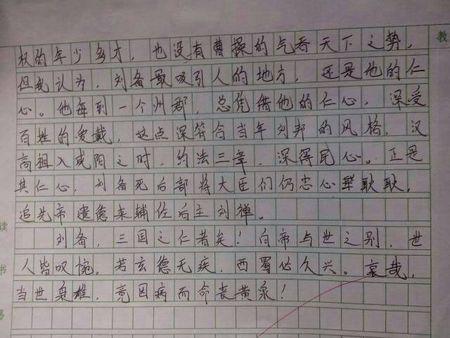 权的年少多才，也没有曹操的气吞天下之势，
但我认为，刘备最吸引人的地方，还是他的仁
心。他每到一个州郡，总凭借他的仁心，深受
百姓的爱戴，这点深符合当年刘邦的风格，汉
高祖入咸阳之时，约法三章，深得民心。正是
其仁心，刘备死后部将大臣们仍忠心耿耿，
追先帝遗愿来辅佐后主刘禅。
刘备，三国之仁者矣！白帝与世之别，世
人皆叹惋。若玄德无疾，西蜀必久兴。哀哉，
当世枭雄，竟因病而命丧黄泉！
教
读
书